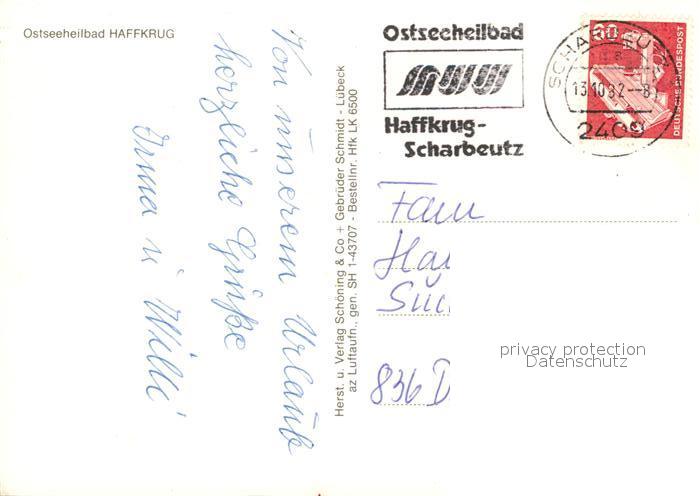 Ostseeheilbad HAFFKRUG
Von unserem Urlaub
herzliche Grüße
Irma u Willi
Herst. u. Verlag Schöning & Co + Gebrüder Schmidt - Lübeck
az Luftaufn., gen. SH 1-43707 - Bestellnr. Hfk LK 6500
Ostseeheilbad
Haffkrug-
Scharbeutz
SCHARBEUTZ
13.10.82--8
2409
60
DEUTSCHE BUNDESPOST
Fam
836 D
privacy protection
Datenschutz